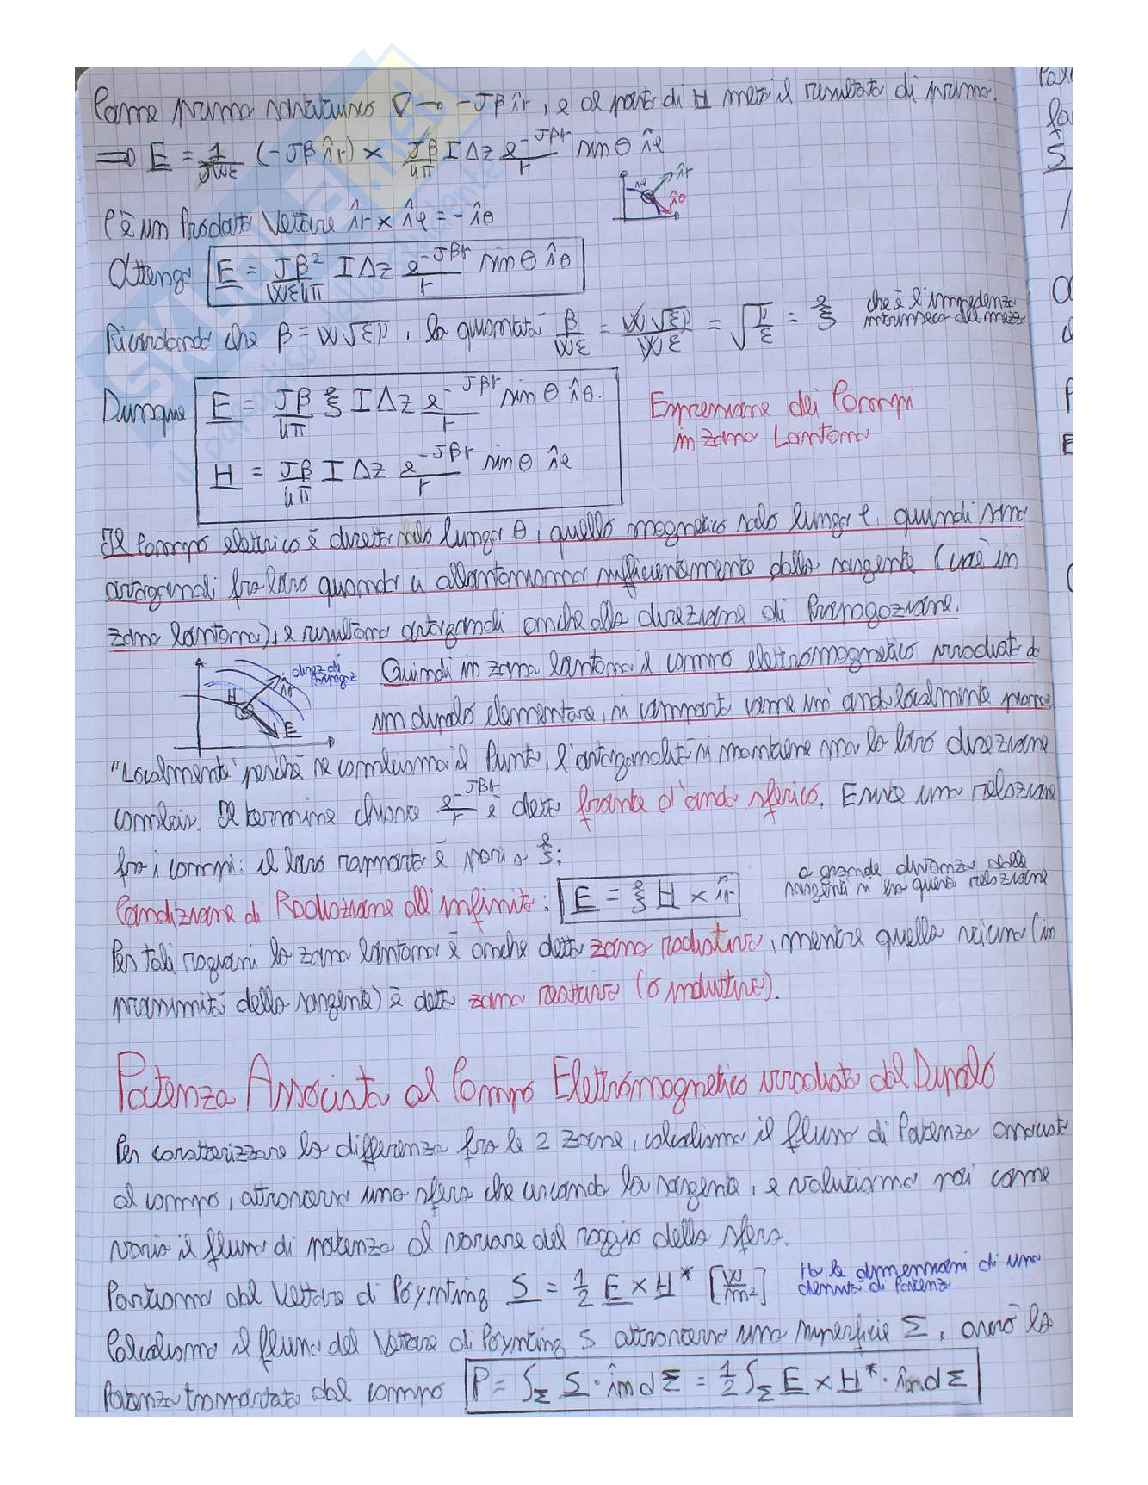 Come prima sostituisco ∇ → -Jβ îr, e al posto di H metto il risultato di prima.
⟹ E = 1/(Jωε) (-Jβ îr) × Jβ/4π I Δz e^(-Jβr)/r sin θ îφ
C'è un Prodotto Vettore îr × îφ = - îθ
îφ îr îθ
Ottengo E = Jβ²/(ωε4π) I Δz e^(-Jβr)/r sin θ îθ
Ricordando che β = ω√(εμ), la quantità β/(ωε) = ω√(εμ)/(ωε) = √(μ/ε) = ξ che è l'impedenza
intrinseca del mezzo
Dunque E = Jβ/4π ξ I Δz e^(-Jβr)/r sin θ îθ.
H = Jβ/4π I Δz e^(-Jβr)/r sin θ îφ
Espressione dei Campi
in zona Lontana
Il campo elettrico è diretto solo lungo θ, quello magnetico solo lungo φ, quindi sono
ortogonali fra loro quando ci allontaniamo sufficientemente dalla sorgente (cioè in
zona lontana), e risultano ortogonali anche alla direzione di Propagazione.
direz di
propagaz
îr
H
E
Quindi in zona lontana il campo elettromagnetico irradiato da
un dipolo elementare, si comporta come un' onda localmente piana
"Localmente" perché se cambiamo il Punto, l'ortogonalità si mantiene ma la loro direzione
cambia. Il termine chiave e^(-Jβr)/r è detto fronte d'onda sferico. Esiste una relazione
fra i campi: il loro rapporto è pari a ξ:
Condizione di Radiazione all'infinito: E = ξ H × îr
a grande distanza dalle
sorgenti si ha questa relazione
Per tali ragioni la zona lontana è anche detta zona radiativa, mentre quella vicina (in
prossimità della sorgente) è detta zona reattiva (o induttiva).
Potenza Associata al Campo Elettromagnetico irradiato dal Dipolo
Per caratterizzare la differenza fra le 2 zone, calcoliamo il flusso di Potenza associato
al campo, attraverso una sfera che circonda la sorgente, e valutiamo poi come
varia il flusso di potenza al variare del raggio della sfera.
Partiamo dal Vettore di Poynting S = 1/2 E × H* [W/m²] Ha le dimensioni di una
densità di Potenza
Calcoliamo il flusso del Vettore di Poynting S attraverso una superficie Σ, ossia la
Potenza trasportata dal campo P = ∫Σ S · în dΣ = 1/2 ∫Σ E × H* · în dΣ